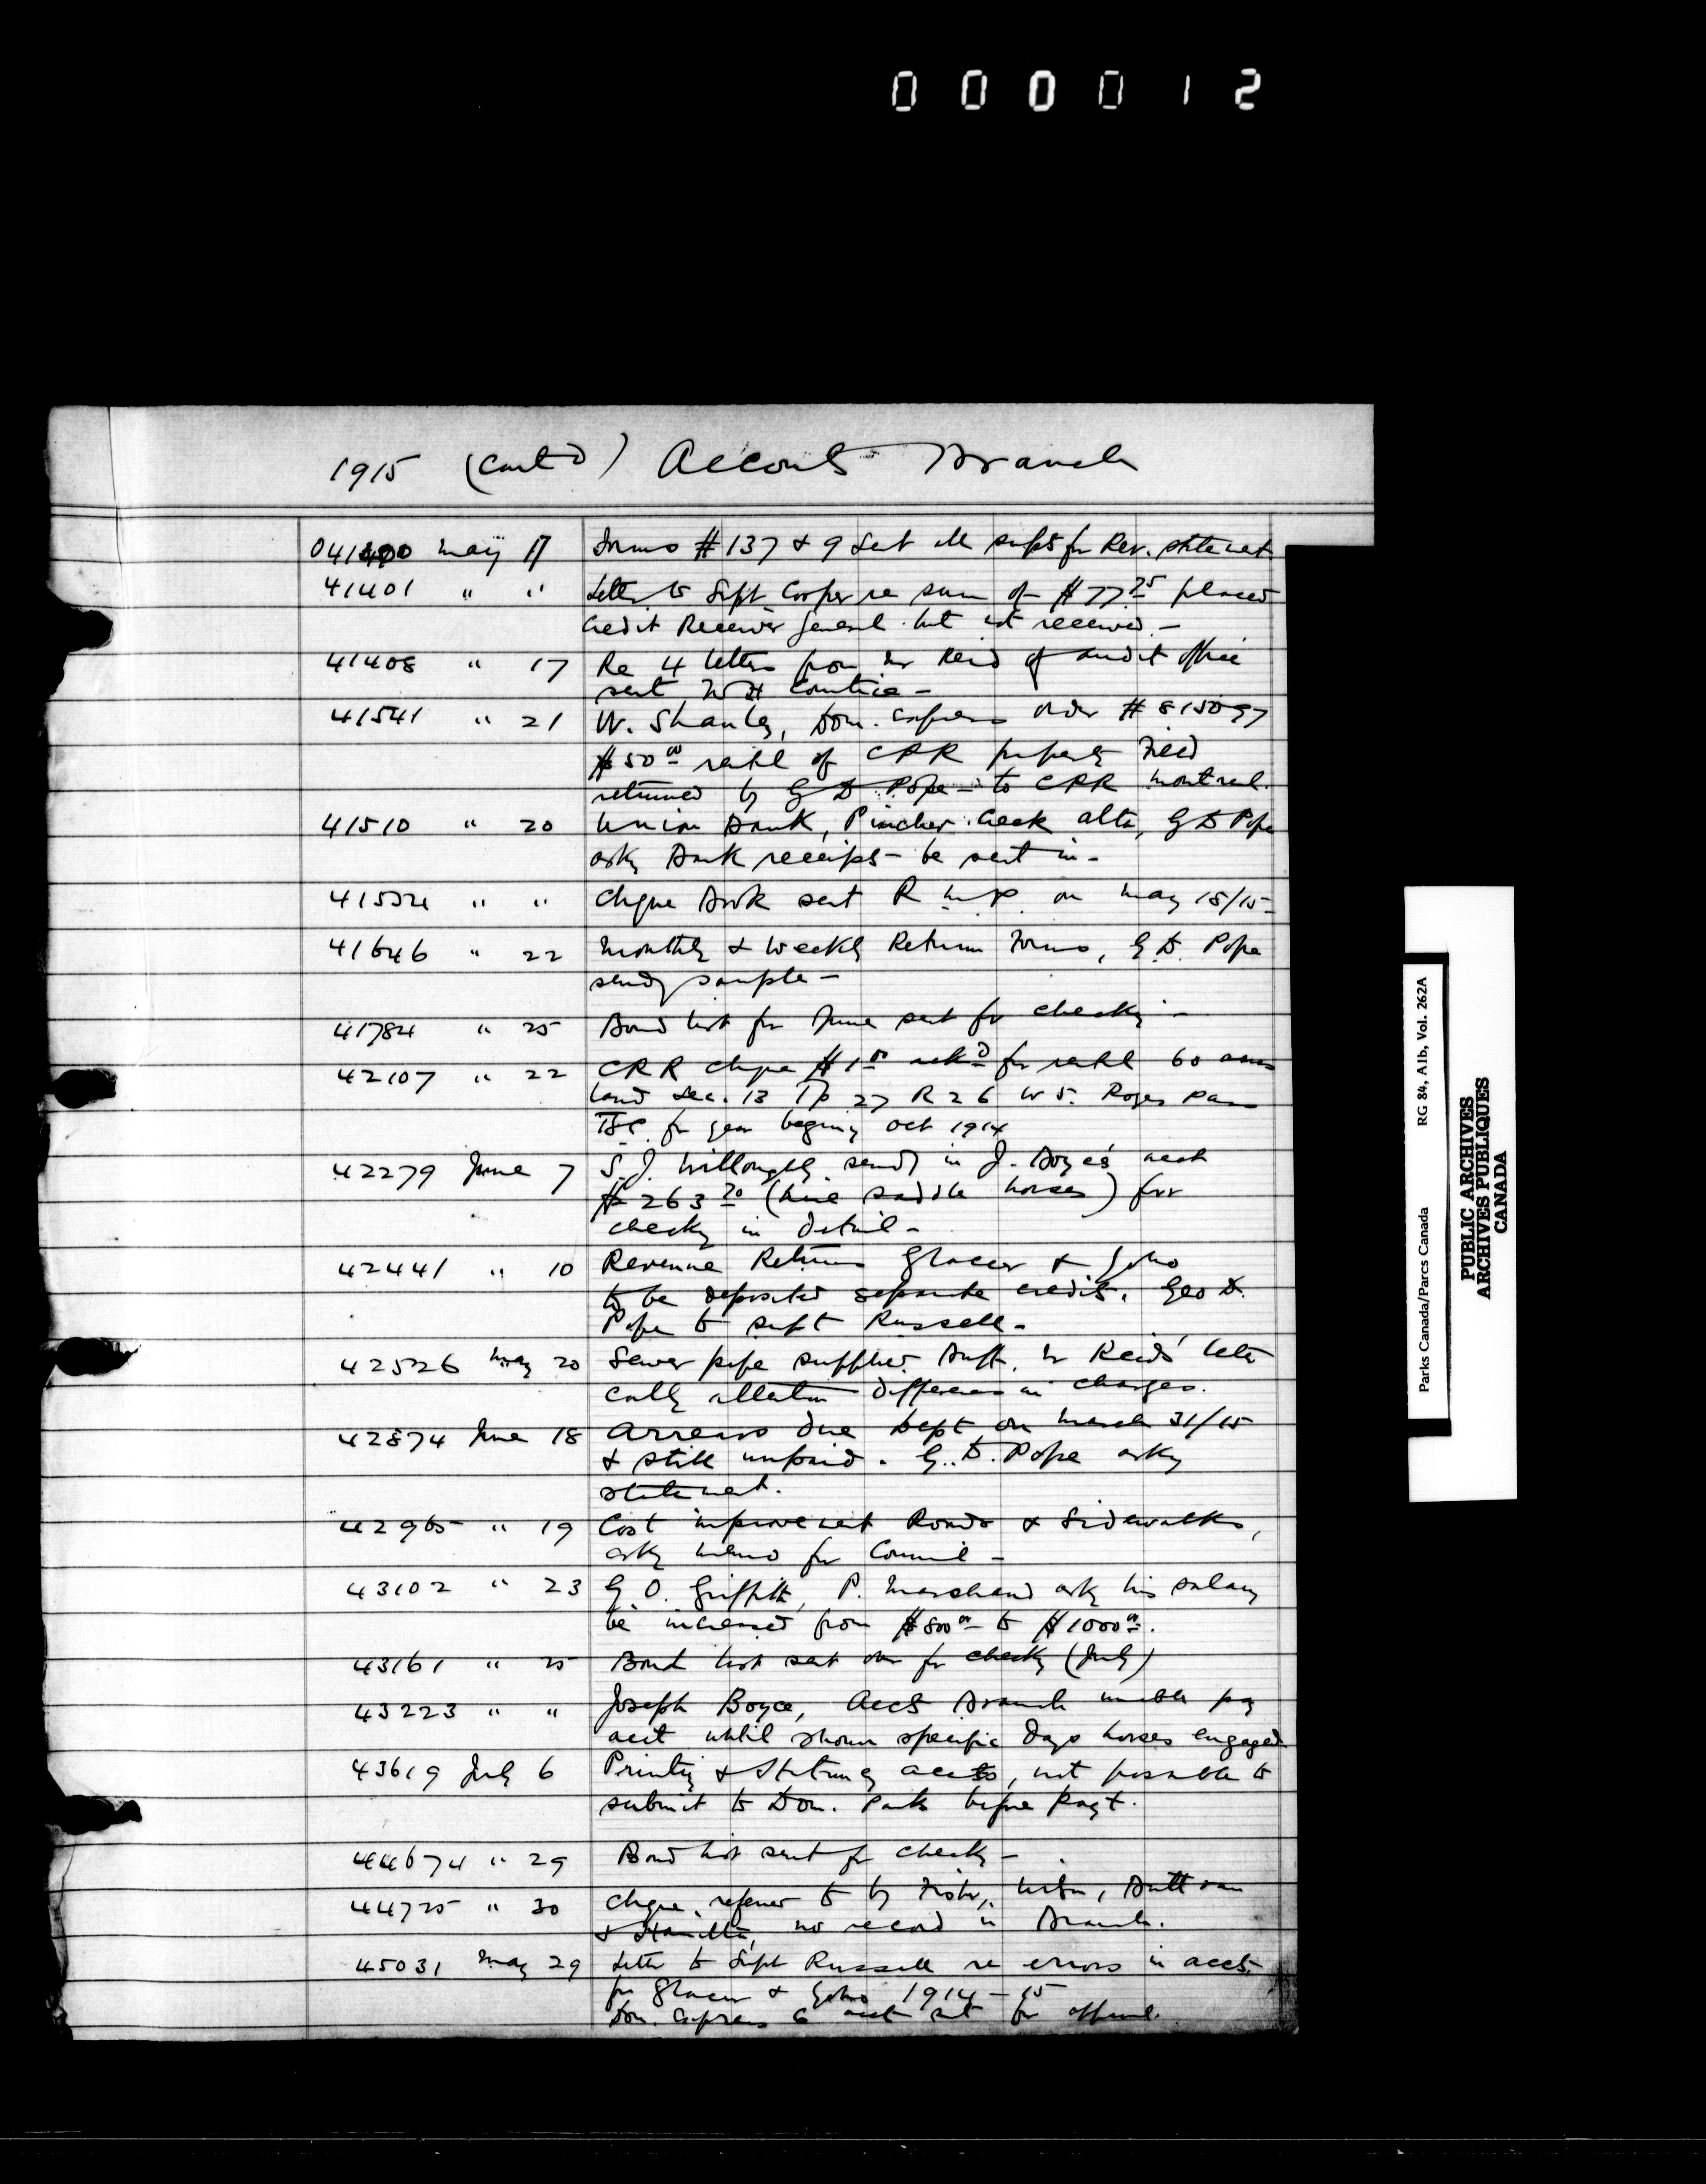 000012
1915 (Cont'd) Accounts Branch
041400 May 17 Forms # 137 & 9 sent all supts for Rev. statement
41401 " " Letter to Supt Cooper re sum of $77.25 placed
Credit Receiver General but not received -
41408 " 17 Re 4 letters from Mr Reid of Audit Office
sent W H
41541 " 21 W. Shanley, Dom. Express order # 815097
$50.00 rental of CPR property Field
returned by G D Pope - to CPR Montreal.
41510 " 20 Union Bank, Pincher Creek Alta, G D Pope
asks Bank receipts be sent in -
" " Cheque Book sent R M P on May 18/15 -
41646 " 22 Monthly & Weekly Return Forms, G. D. Pope
sends sample -
41784 " 25 Bond list for June sent for checking -
42107 " 22 CPR cheque $1.00 ackd for rental 60 acres
land Sec. 13 Tp 27 R 26 W 5. Rogers Pass
B.C. for year beging Oct 1914
42279 June 7 S. J. Willoughby sends in J. Boyce's acct
$263.20 (hire saddle horses) for
checkg in detail -
42441 " 10 Revenue Returns Glacier & Yoho
to be deposited separate credits. Geo D.
Pope to supt Russell -
42526 May 20 Sewer pipe supplied Banff, Mr Reids' letter
callg attention difference in charges.
42874 June 18 Arrears due Dept on March 31/15
& still unpaid. G. D. Pope askg
statement.
42965 " 19 Cost improvement Roads & Sidewalks,
askg memo for Council -
43102 " 23 G. O. Griffith, P. Marchand ask his salary
be increased from $800.00 to $1000.00.
43161 " 25 Bond list sent over for checkg (July)
43223 " " Joseph Boyce, Accts Branch unable pay
acct until shown specific days horses engaged
43619 July 6 Printing & Stationery accts, not possible to
submit to Dom. Parks before payt.
44674 " 29 Bond list sent for checkg -
44725 " 30 Cheque referred to by Fisher,
& Hamilton, no record in Branch.
45031 May 29 Letter to Supt Russell re errors in accts.
for Glacier & Yoho 1914 - 15
Dom. Express Co acct sent for approval.
Parks Canada/Parcs Canada RG 84, A1b, Vol. 262A
PUBLIC ARCHIVES
ARCHIVES PUBLIQUES
CANADA